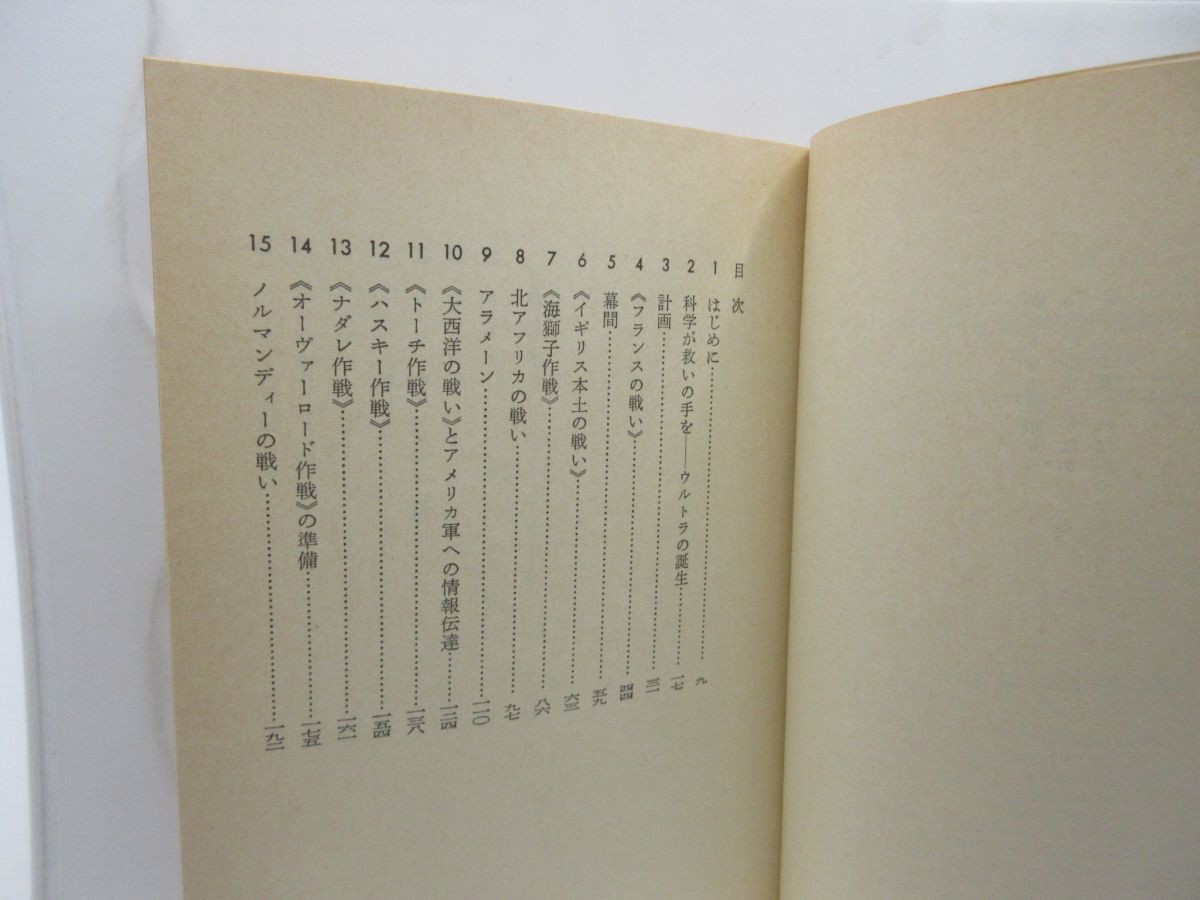 目次
1 はじめに……九
2 科学が救いの手を——ウルトラの誕生……一七
3 計画……三一
4 《フランスの戦い》……四四
5 幕間……五九
6 《イギリス本土の戦い》……六三
7 《海獅子作戦》……八六
8 北アフリカの戦い……九七
9 アラメーン……一一〇
10 《大西洋の戦い》とアメリカ軍への情報伝達……一二四
11 《トーチ作戦》……一三八
12 《ハスキー作戦》……一五四
13 《ナダレ作戦》……一六一
14 《オーヴァーロード作戦》の準備……一七五
15 ノルマンディーの戦い……一九二